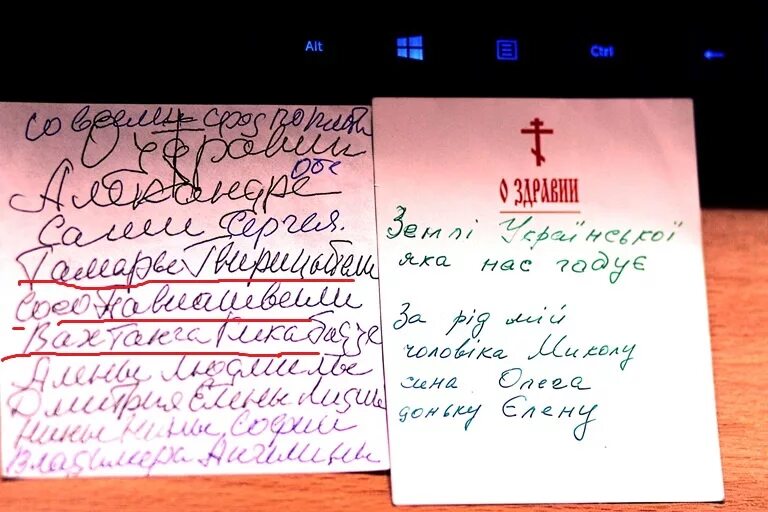 Alt
Ctrl
со всеми сродниками
О здравии
Александре
Саши Сергея.
Тамары
Сосо Павлиашвили
Вахтанга Кикабидзе
Алены Людмилы
Дмитрия Елены Лидии
Нины Нины Софии
Владимира Ангелины
О ЗДРАВИИ
Землі Української
яка нас годує
За рід мій
чоловіка Миколу
сина Олега
доньку Єлену